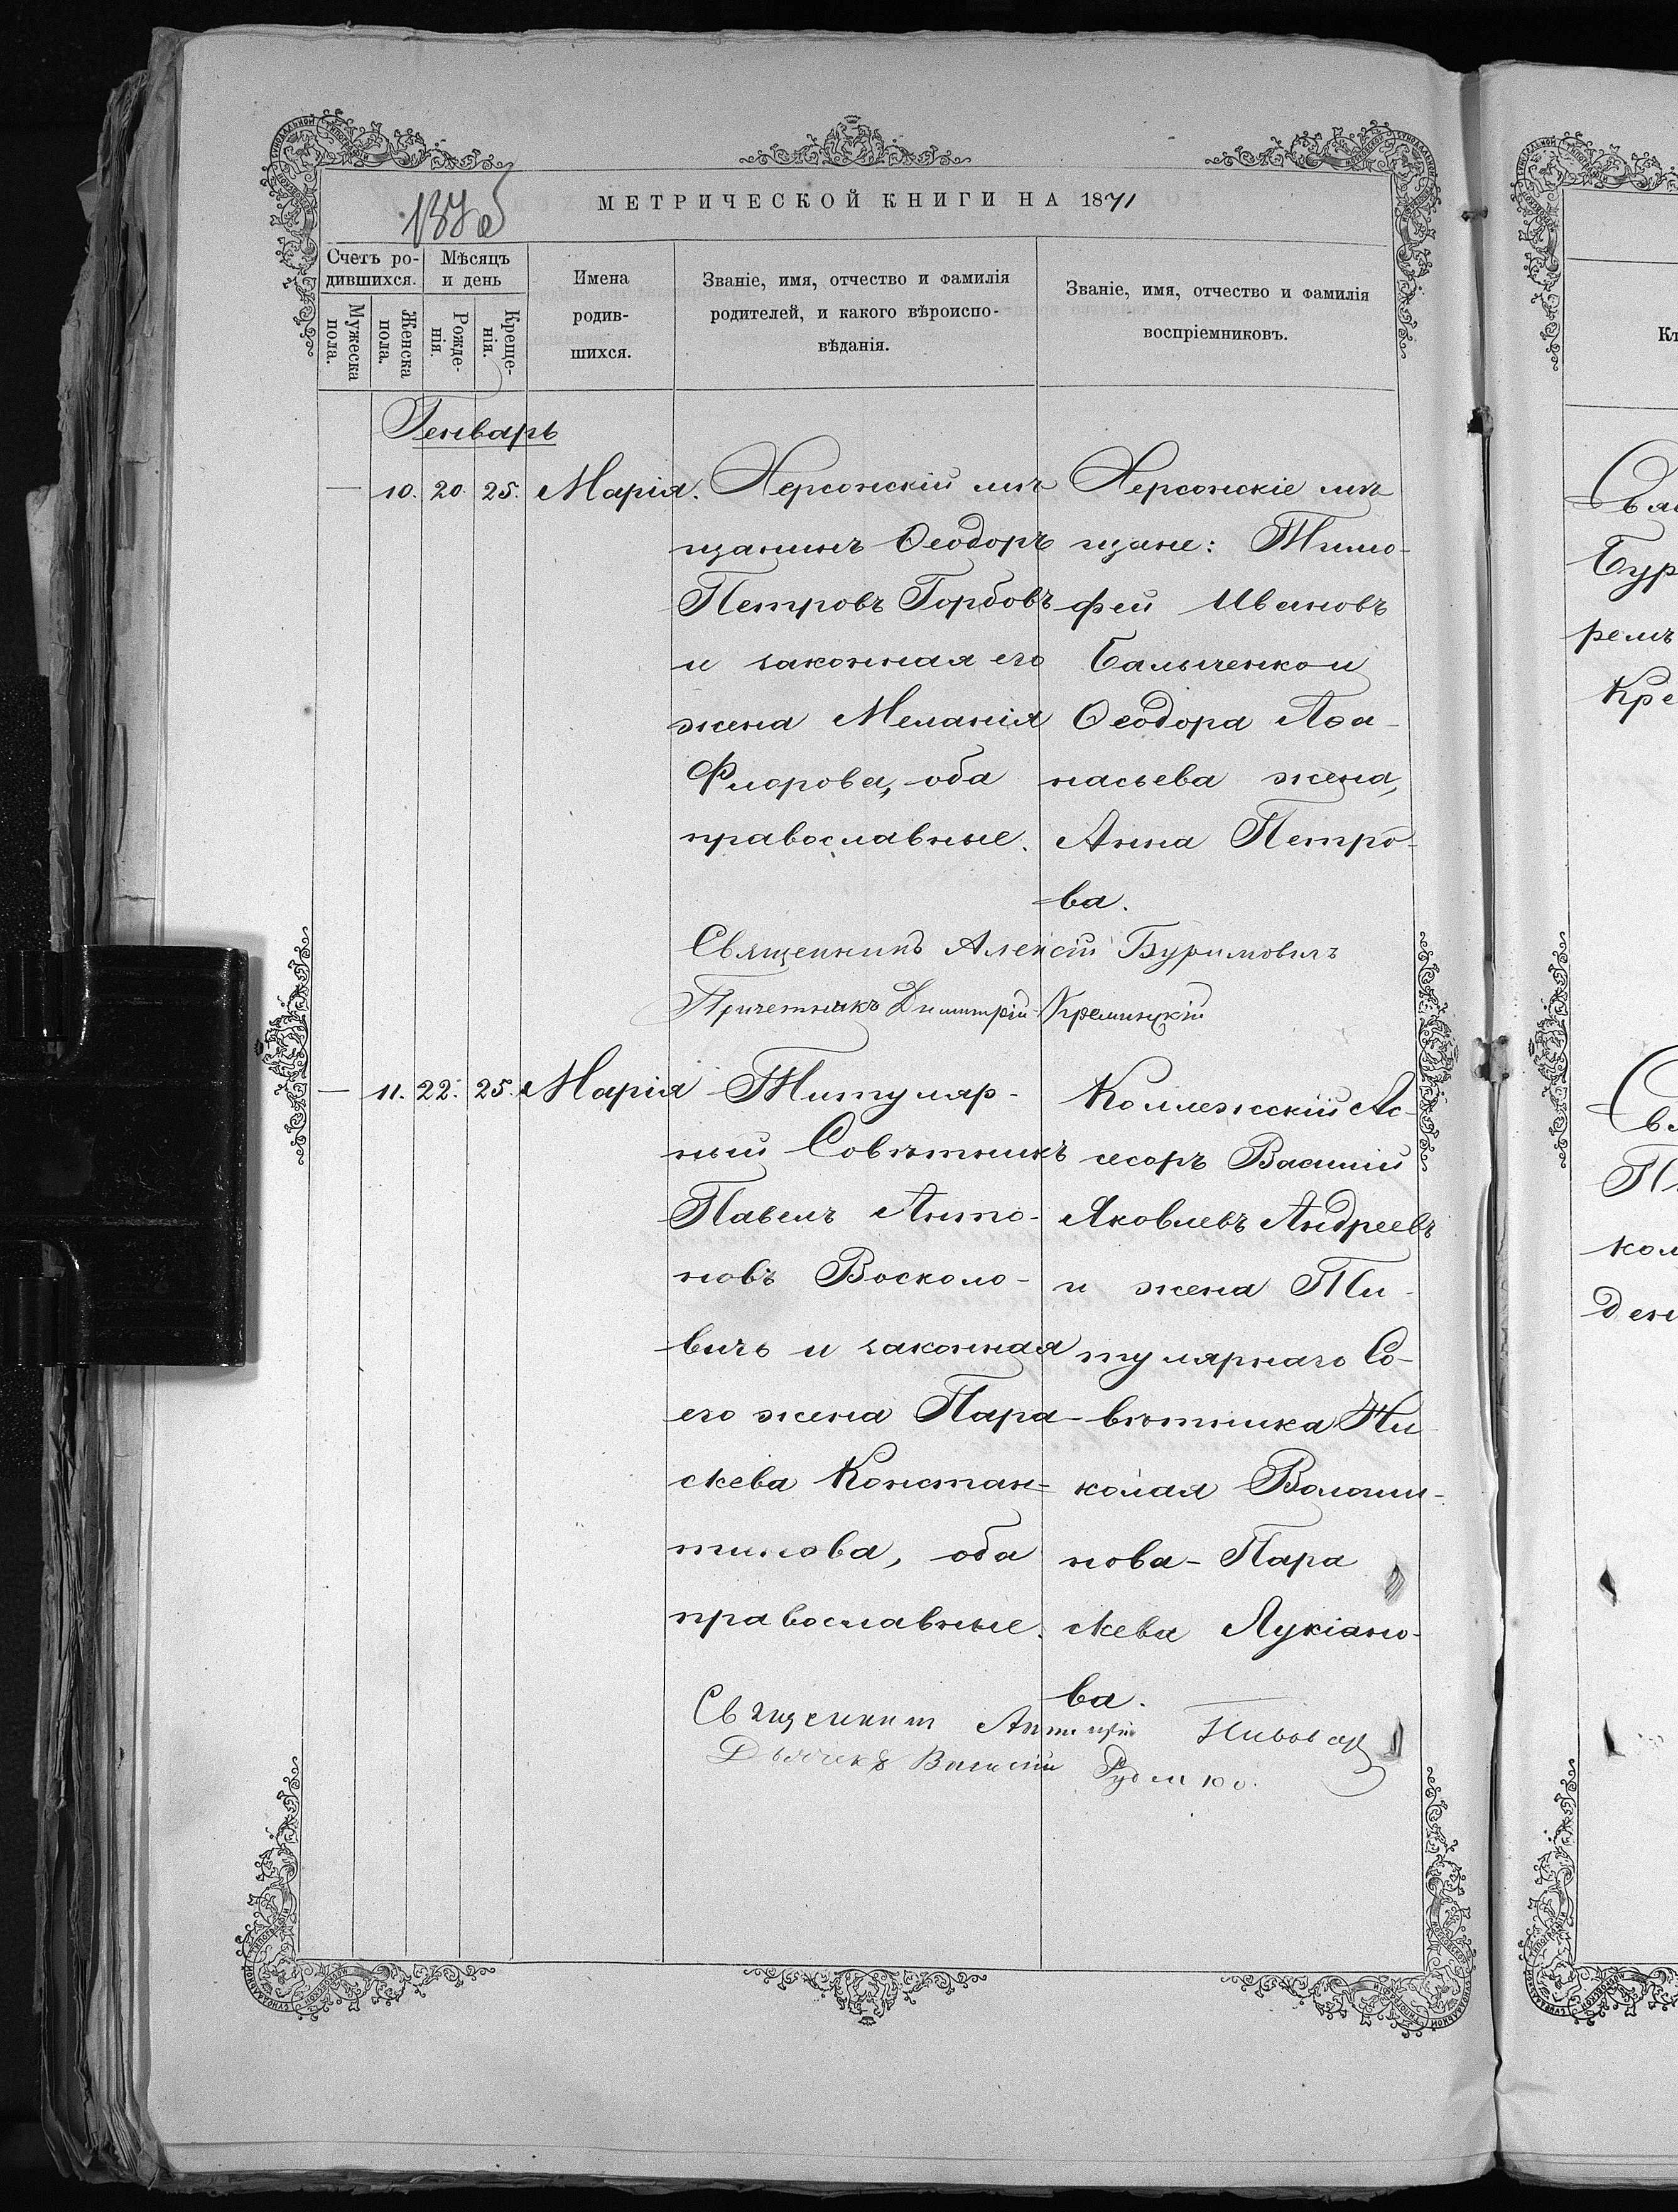 МЕТРИЧЕСКОЙ КНИГИ НА 1871
Счетъ ро-
дившихся.
Мѣсяцъ
и день
Мужеска
пола.
Женска
пола.
Рожде-
нія.
Креще-
нія.
Имена
родив-
шихся.
Званіе, имя, отчество и фамилія
родителей, и какого вѣроиспо-
вѣданія.
Званіе, имя, отчество и фамилія
воспріемниковъ.
Генварь
— 10. 20. 25. Марія.
Херсонскій мѣ
щанинъ Ѳеодоръ
Петровъ Горбовъ
и законная его
жена Меланія
Флорова, оба
православные.
Херсонскіе мѣ
щане: Тимо-
фей Ивановъ
и
Ѳеодора Аѳа-
насьева жена,
Анна Петро-
ва.
Священникъ Алексій Буримовичъ
Причетникъ Димитрій Кременецкій
— 11. 22. 25. Марія
Титуляр-
ный Совѣтникъ
Павелъ Анто-
новъ Восколо-
вичъ и законная
его жена Пара-
скева Констан-
тинова, оба
православные.
Коллежскій Ас-
сесоръ Василій
Яковлевъ Андреевъ
и жена Ти-
тулярнаго Со-
вѣтника Ни-
колая Волоши-
нова - Пара
скева Лукіано-
ва.
Священникъ
Василій
Кл
Свя
Бур
ремъ
Кре
Св
кол
ден